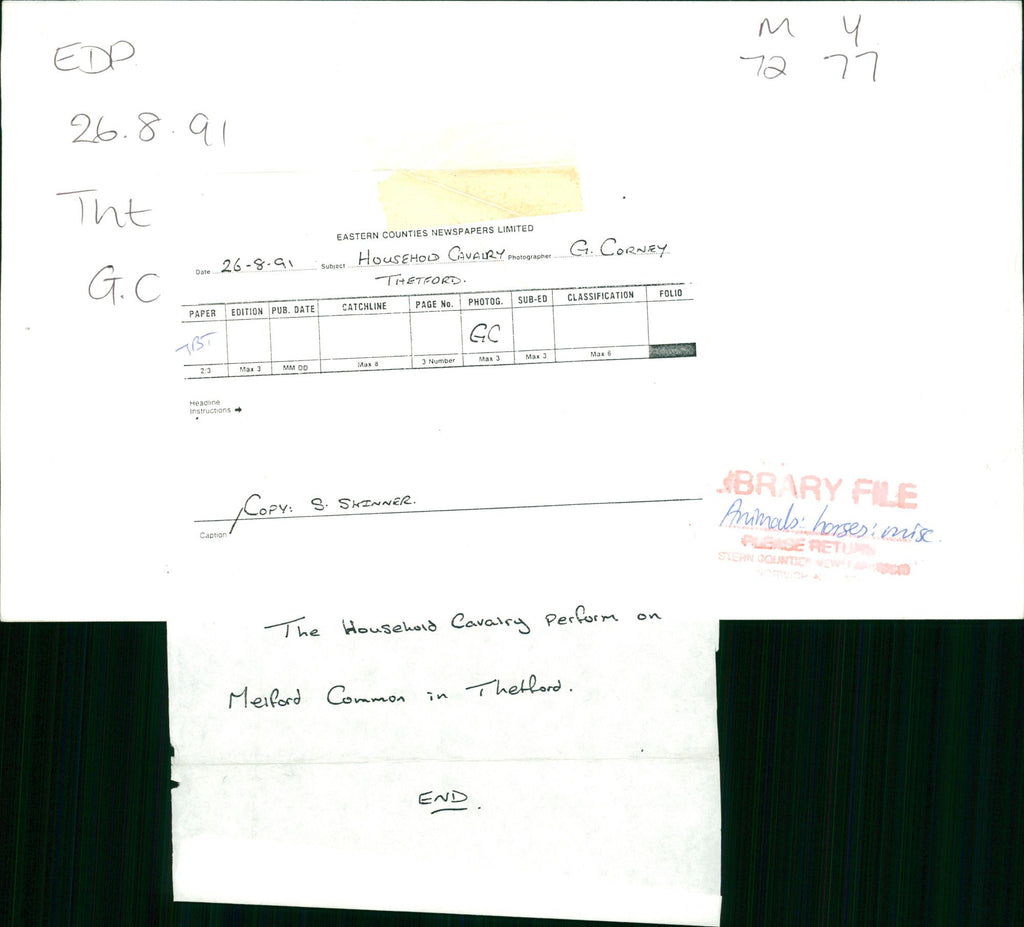 EDP
M Y
72 77
26.8.91
Tht
G.C
EASTERN COUNTIES NEWSPAPERS LIMITED
Date 26-8-91 Subject HOUSEHOLD CAVALRY Photographer G. CORNEY
THETFORD.
PAPER EDITION PUB. DATE CATCHLINE PAGE No. PHOTOG. SUB-ED CLASSIFICATION FOLIO
TBT GC
2/3 Max 3 MM DD Max 8 3 Number Max 3 Max 3 Max 6
Headline
Instructions →
COPY: S. SKINNER.
Caption
LIBRARY FILE
Animals: horses: misc.
PLEASE RETURN
The Household Cavalry perform on
Melford Common in Thetford.
END.